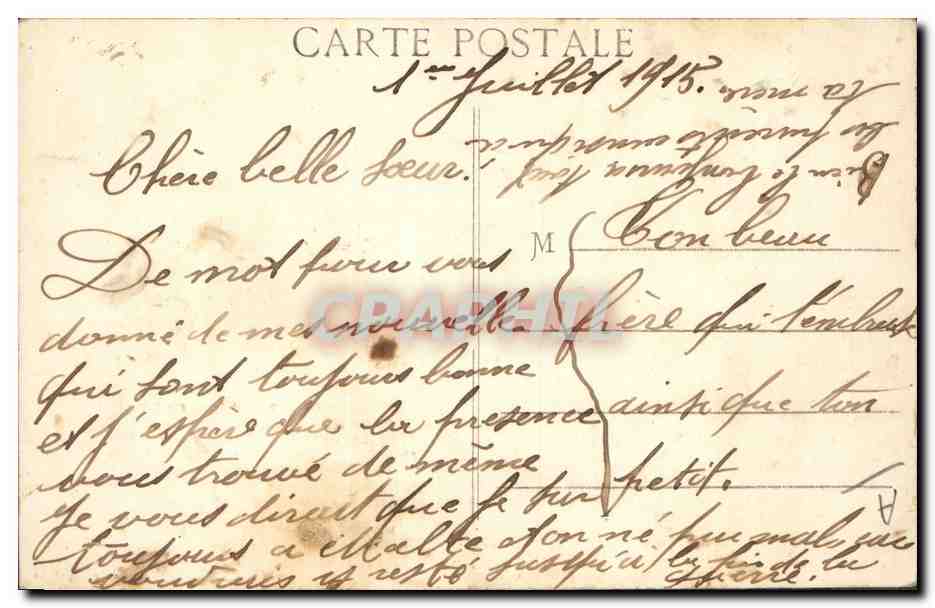 CARTE POSTALE
1er Juillet 1915.
Chère belle sœur.
De mot pour vous
donné de mes nouvelle
qui sont toujours bonne
et j'espère que la présence
vous trouve de même
Je vous dirait que je sui
toujours a Malte on né pas mal, je
voudrais y resté jusqu'à la fin de la
guerre.
M
Ton beau
frère qui t'embrasse
ainsi que ton
petit.
Bien le bonjour
A
CPAPHIL